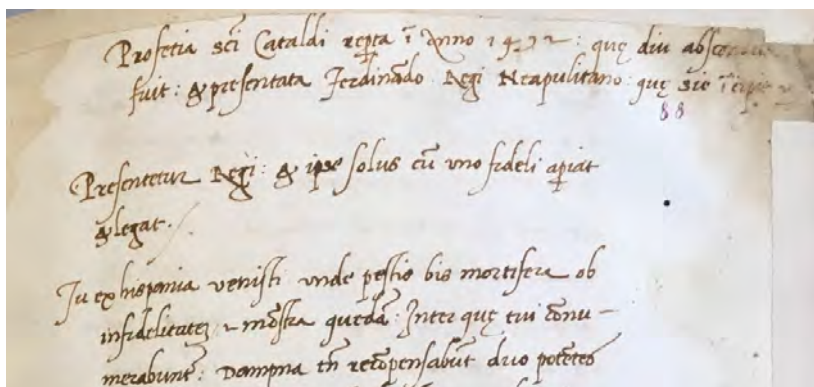 Profetia sc̄i Cataldi rep̱ta ī Anno 1492 : quę diu abscon
fuit : & presentata Ferdinādo Regi Neapulitano : quę sic īcipi
88
Presentetur Regi : & ipse solus cū uno fideli ap̱iat
& legat.
Tu ex hispania venisti unde pestis bis mortifera ob
infidelitatez & mōstra quedā : Inter quę tui ōnu-
merabunt : Dampna tn̄ recōpensabūt duo potētes